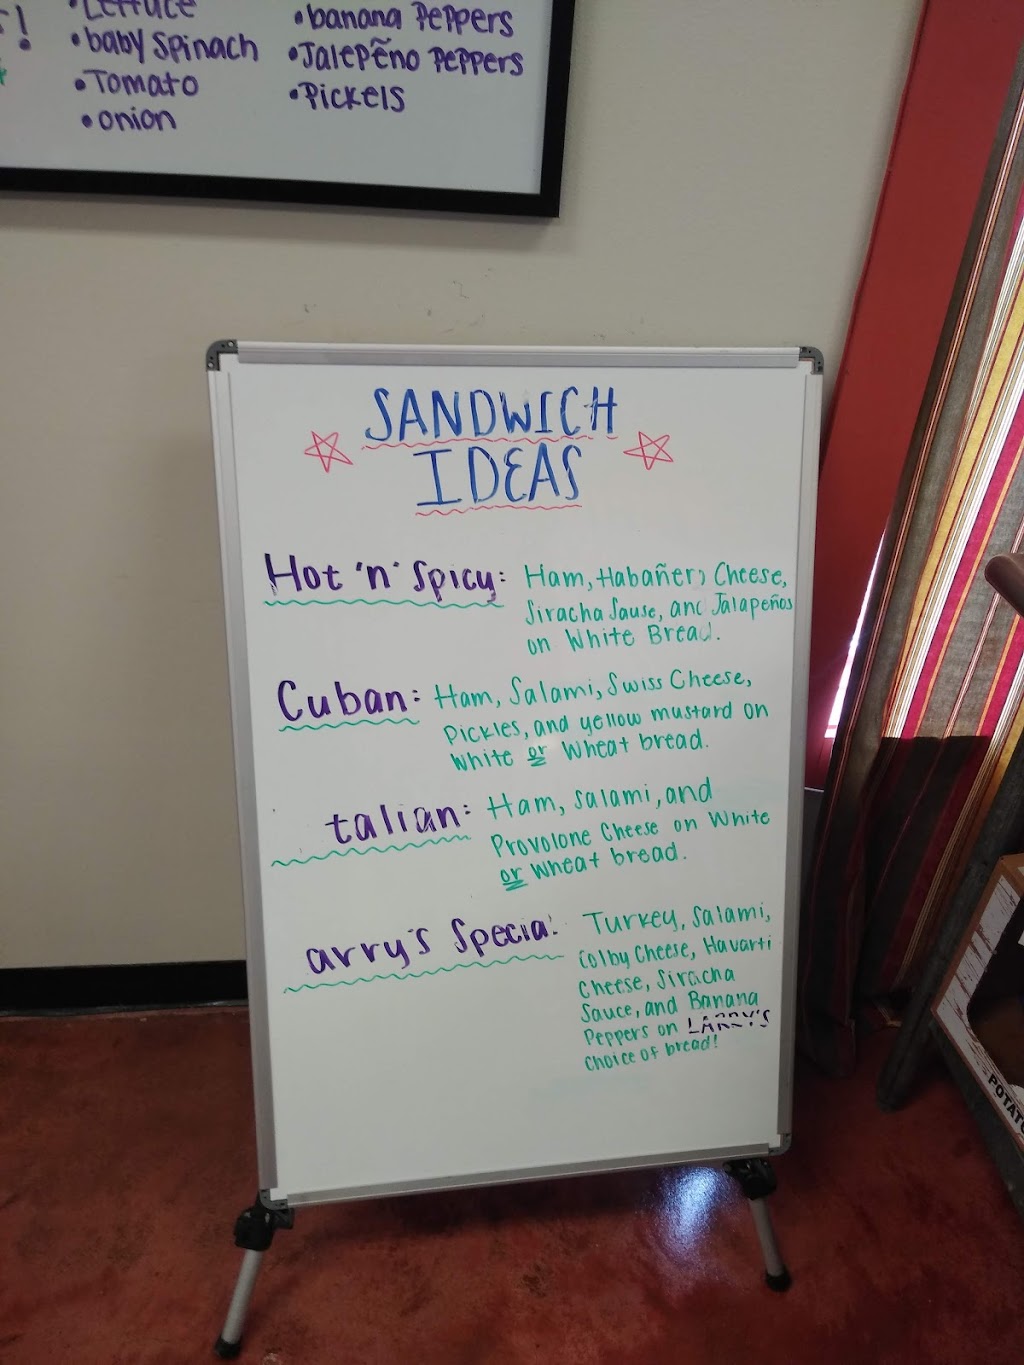 !
• Lettuce
• baby spinach
• Tomato
• onion
• banana PePPers
• JalePẽno PePPers
• Pickels
SANDWICH
IDEAS
Hot 'n' Spicy: Ham, Habañero Cheese,
Siracha Sause, and Jalapeños
on White Bread.
Cuban: Ham, Salami, Swiss Cheese,
Pickles, and yellow mustard on
White or Wheat bread.
talian: Ham, salami, and
Provolone Cheese on White
or Wheat bread.
arry's Special: Turkey, Salami,
Colby Cheese, Havarti
Cheese, Siracha
Sauce, and Banana
Peppers on LARRY'S
Choice of bread!
POTATO